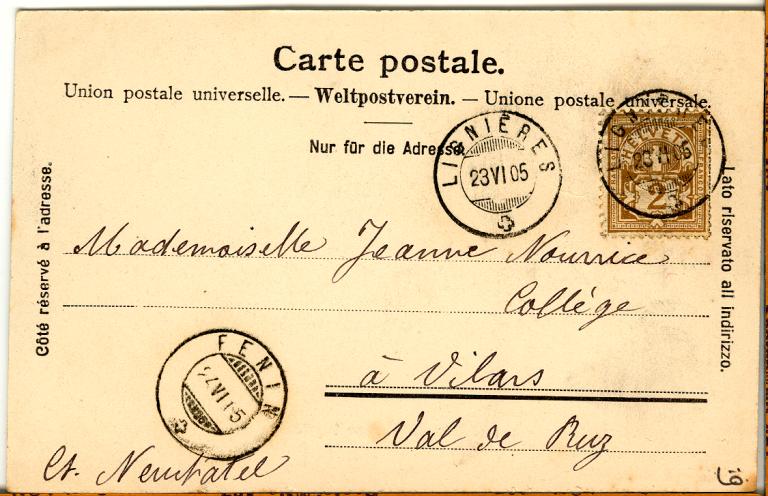 Carte postale.
Union postale universelle. — Weltpostverein. — Unione postale universale.
Nur für die Adresse
LIGNIÈRES
23 VI 05
LIGNIÈRES
23 VI 05
HELVETIA
2
Côté réservé à l'adresse.
Lato riservato all indirizzo.
Mademoiselle Jeanne Nourrice
Collège
à Vilars
Val de Ruz
Ct. Neuchatel
FENIN
VI 05
19